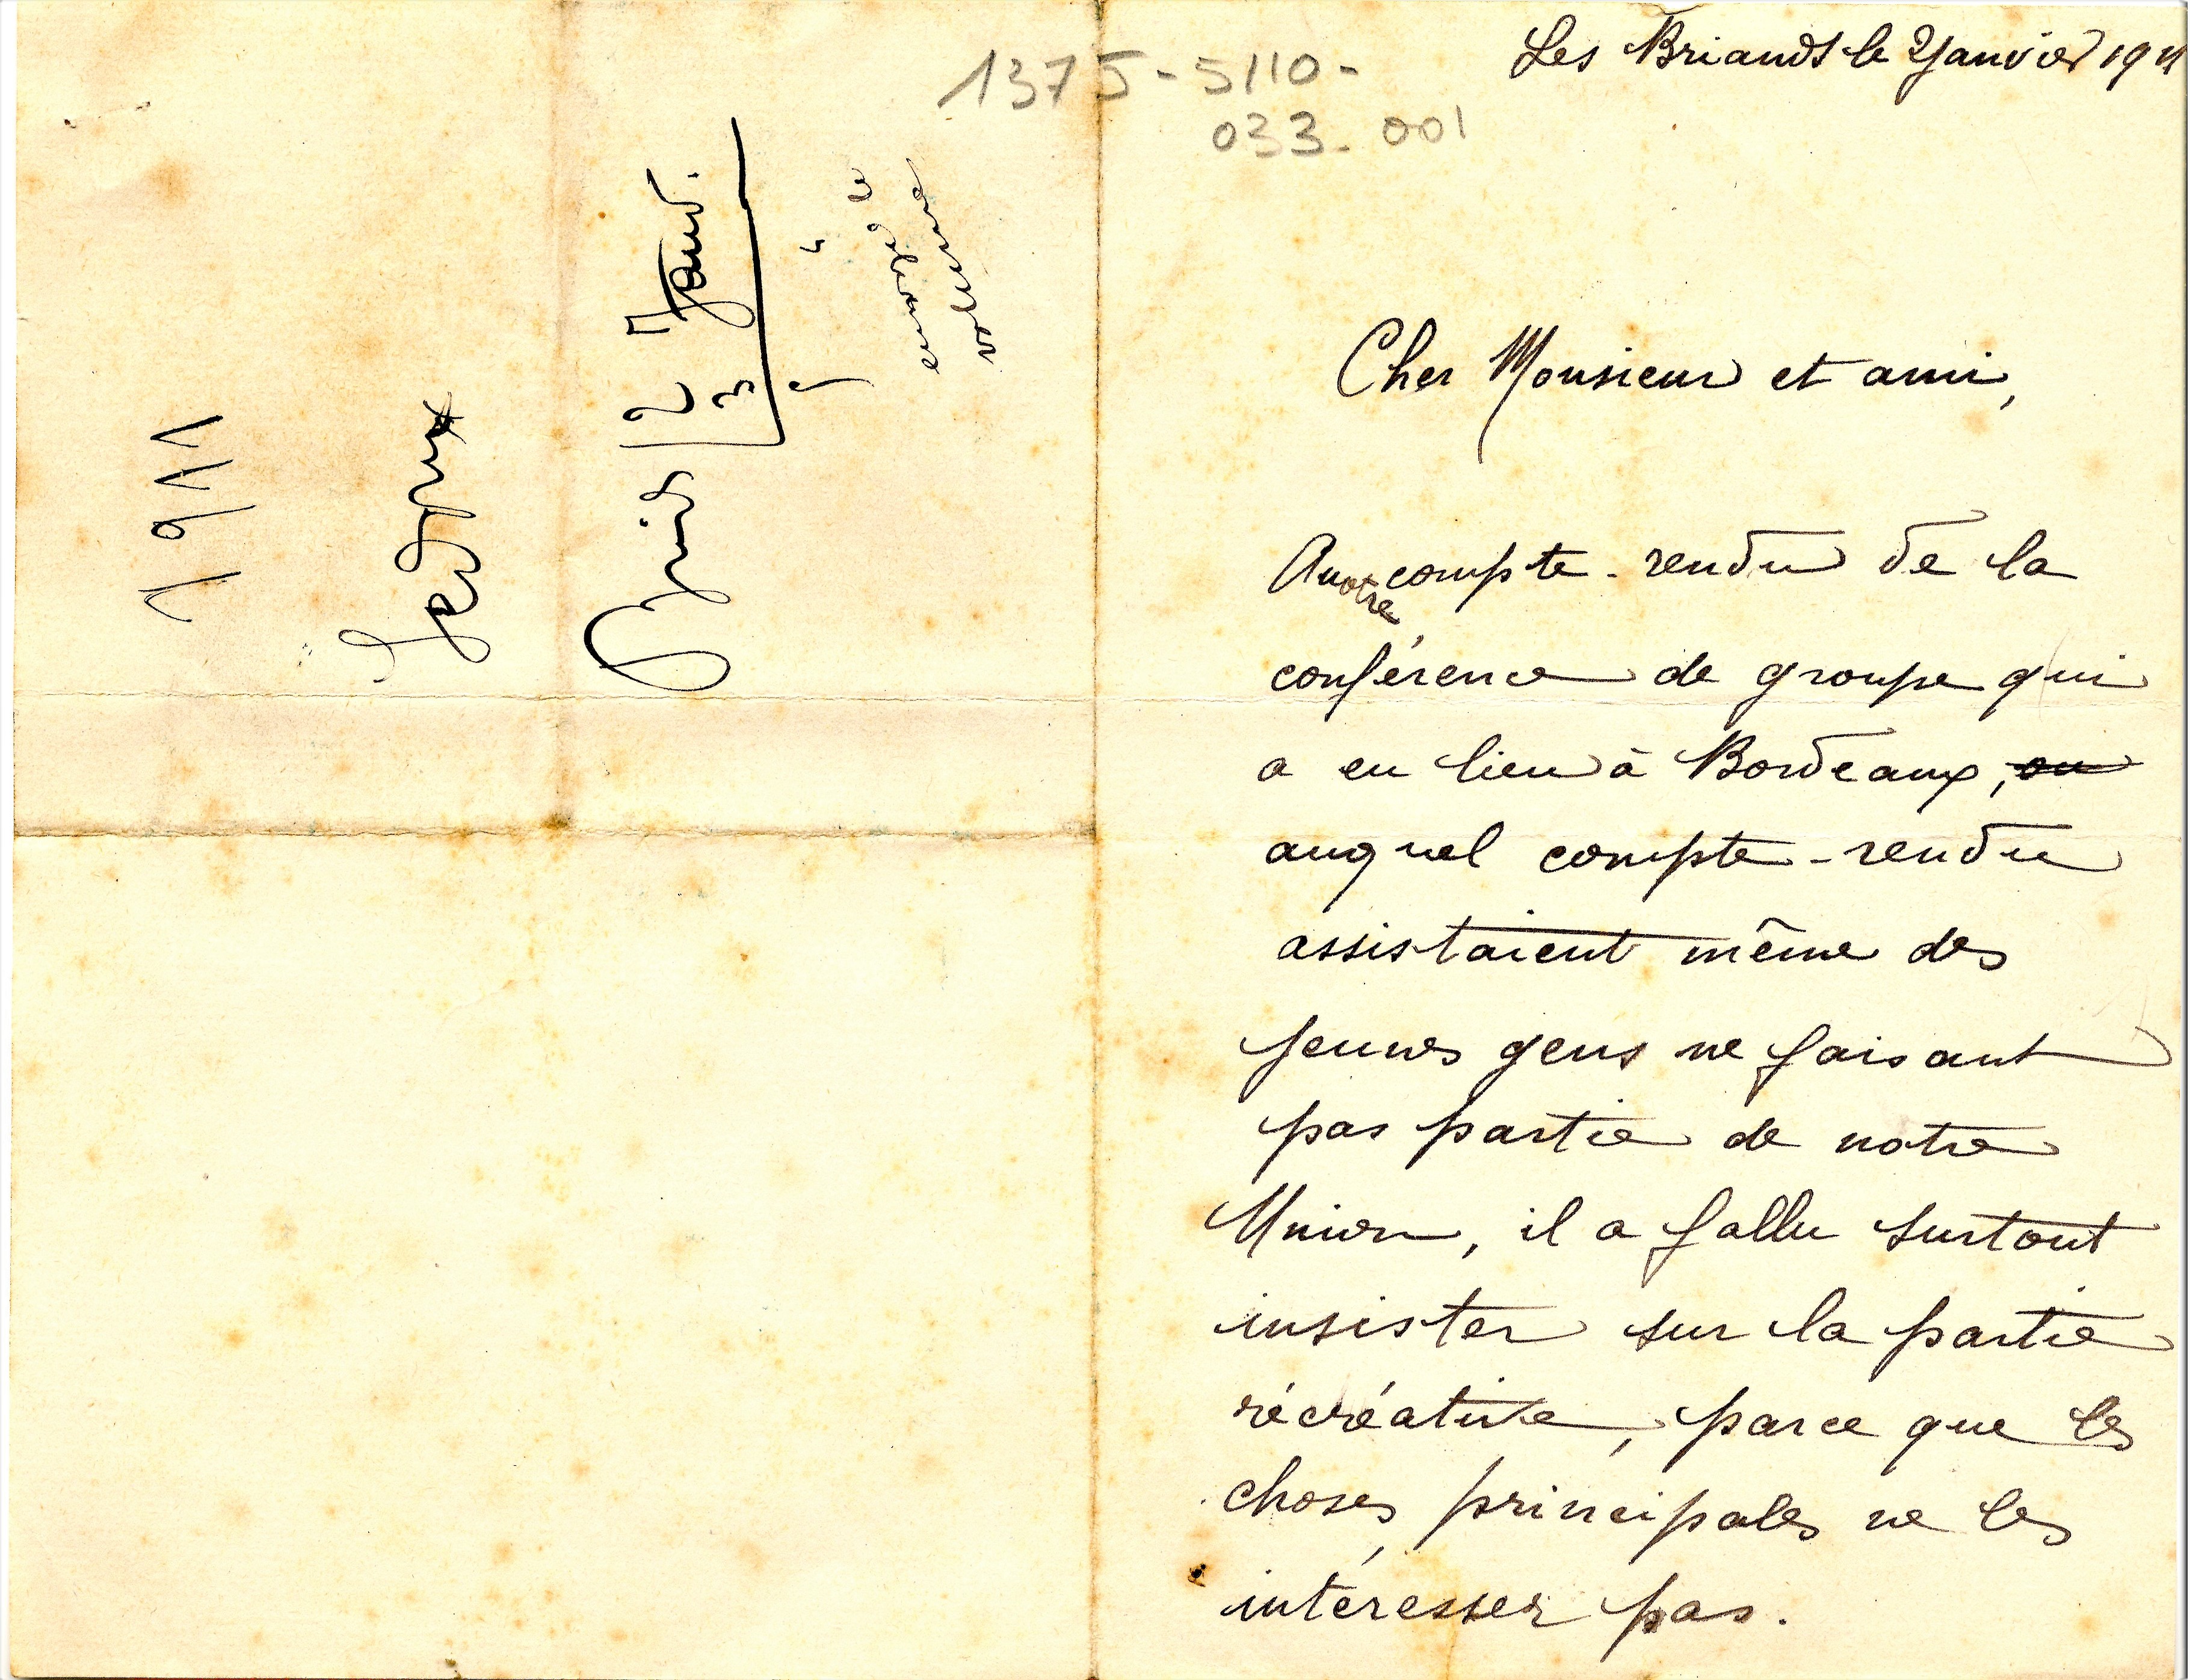 1375-5110-
033-001
1911
2 Janv.
3
envoyé le
volume
Les Briands le 2 Janvier 1911
Cher Monsieur et ami,
Au notre compte-rendu de la
conférence de groupe qui
a eu lieu à Bordeaux, ou
auquel compte-rendu
assistaient même des
jeunes gens ne faisant
pas partie de notre
Union, il a fallu surtout
insister sur la partie
récréative, parce que les
choses principales ne les
intéresser pas.